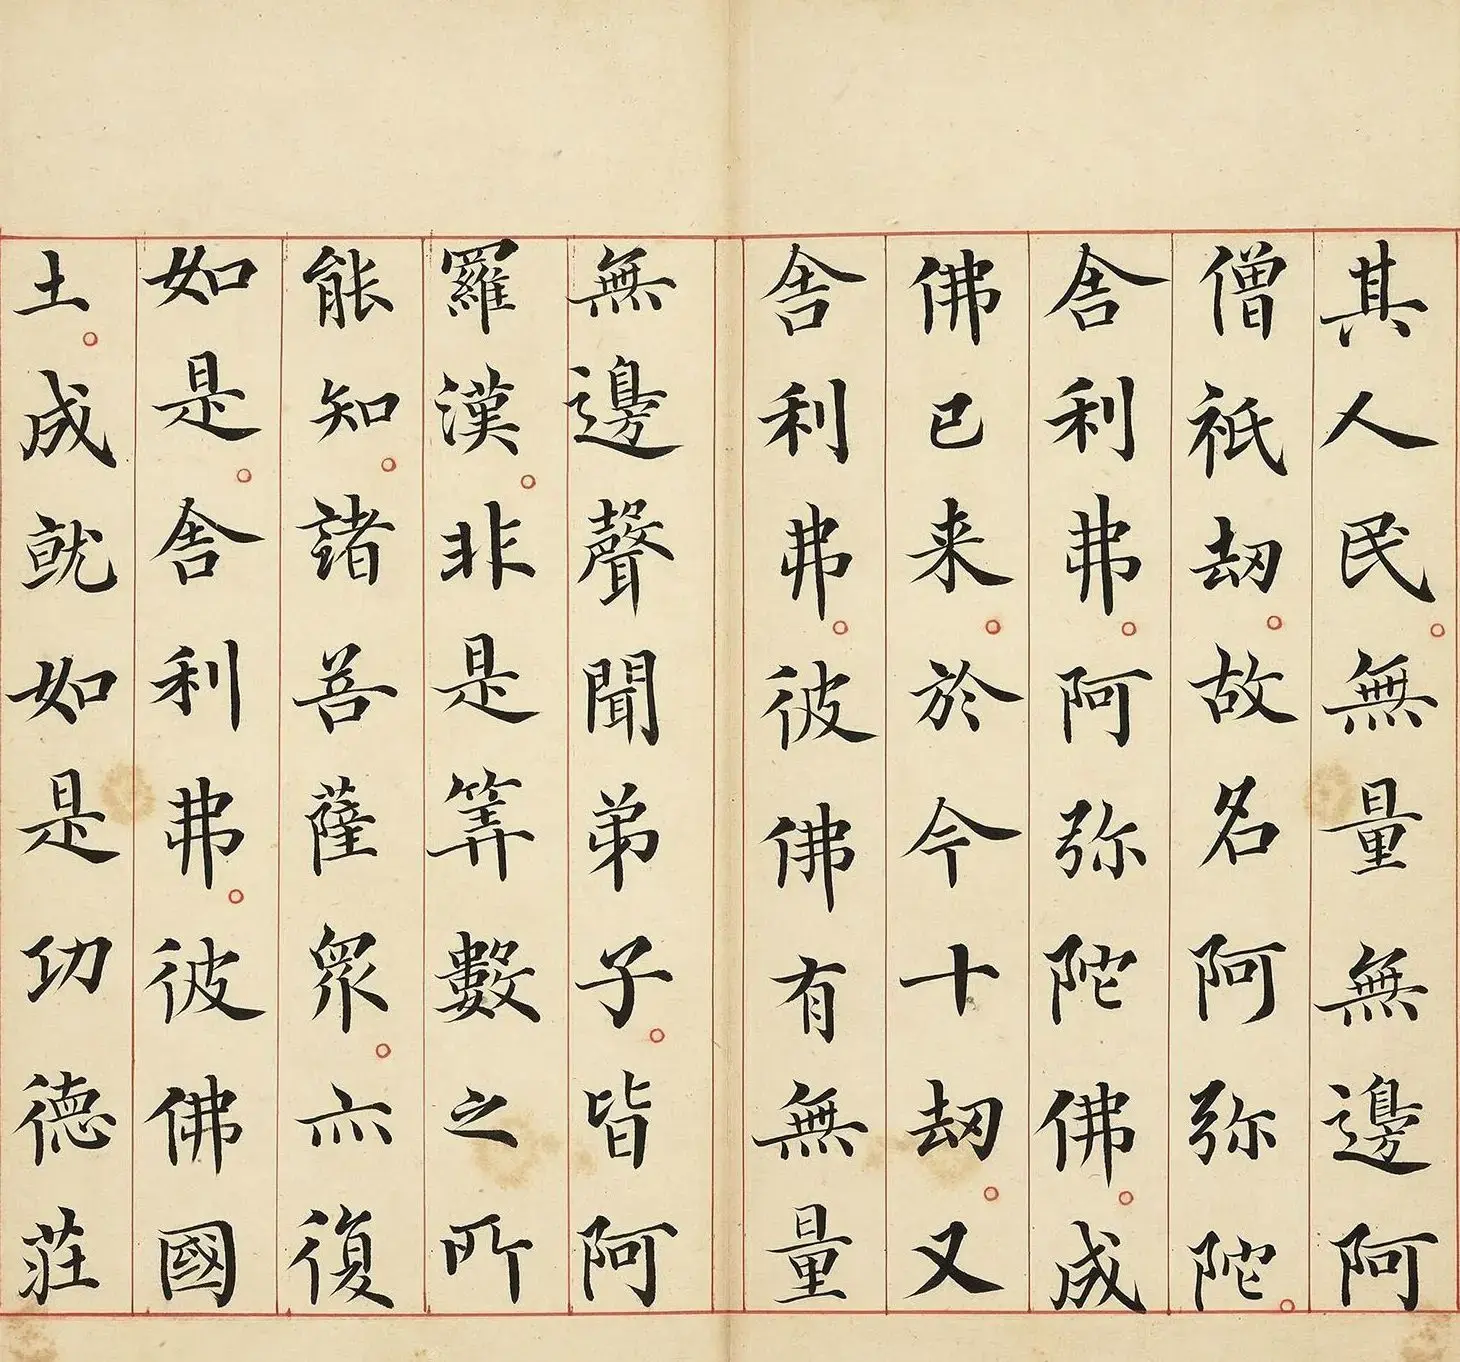 其人民。無量無邊阿
僧祇劫。故名阿弥陀。
舎利弗。阿弥陀佛。成
佛已来。於今十劫。又
舎利弗。彼佛有無量
無邊聲聞弟子。皆阿
羅漢。非是筭數之所
能知。諸菩薩眾。亦復
如是。舎利弗。彼佛國
土。成就如是功德莊